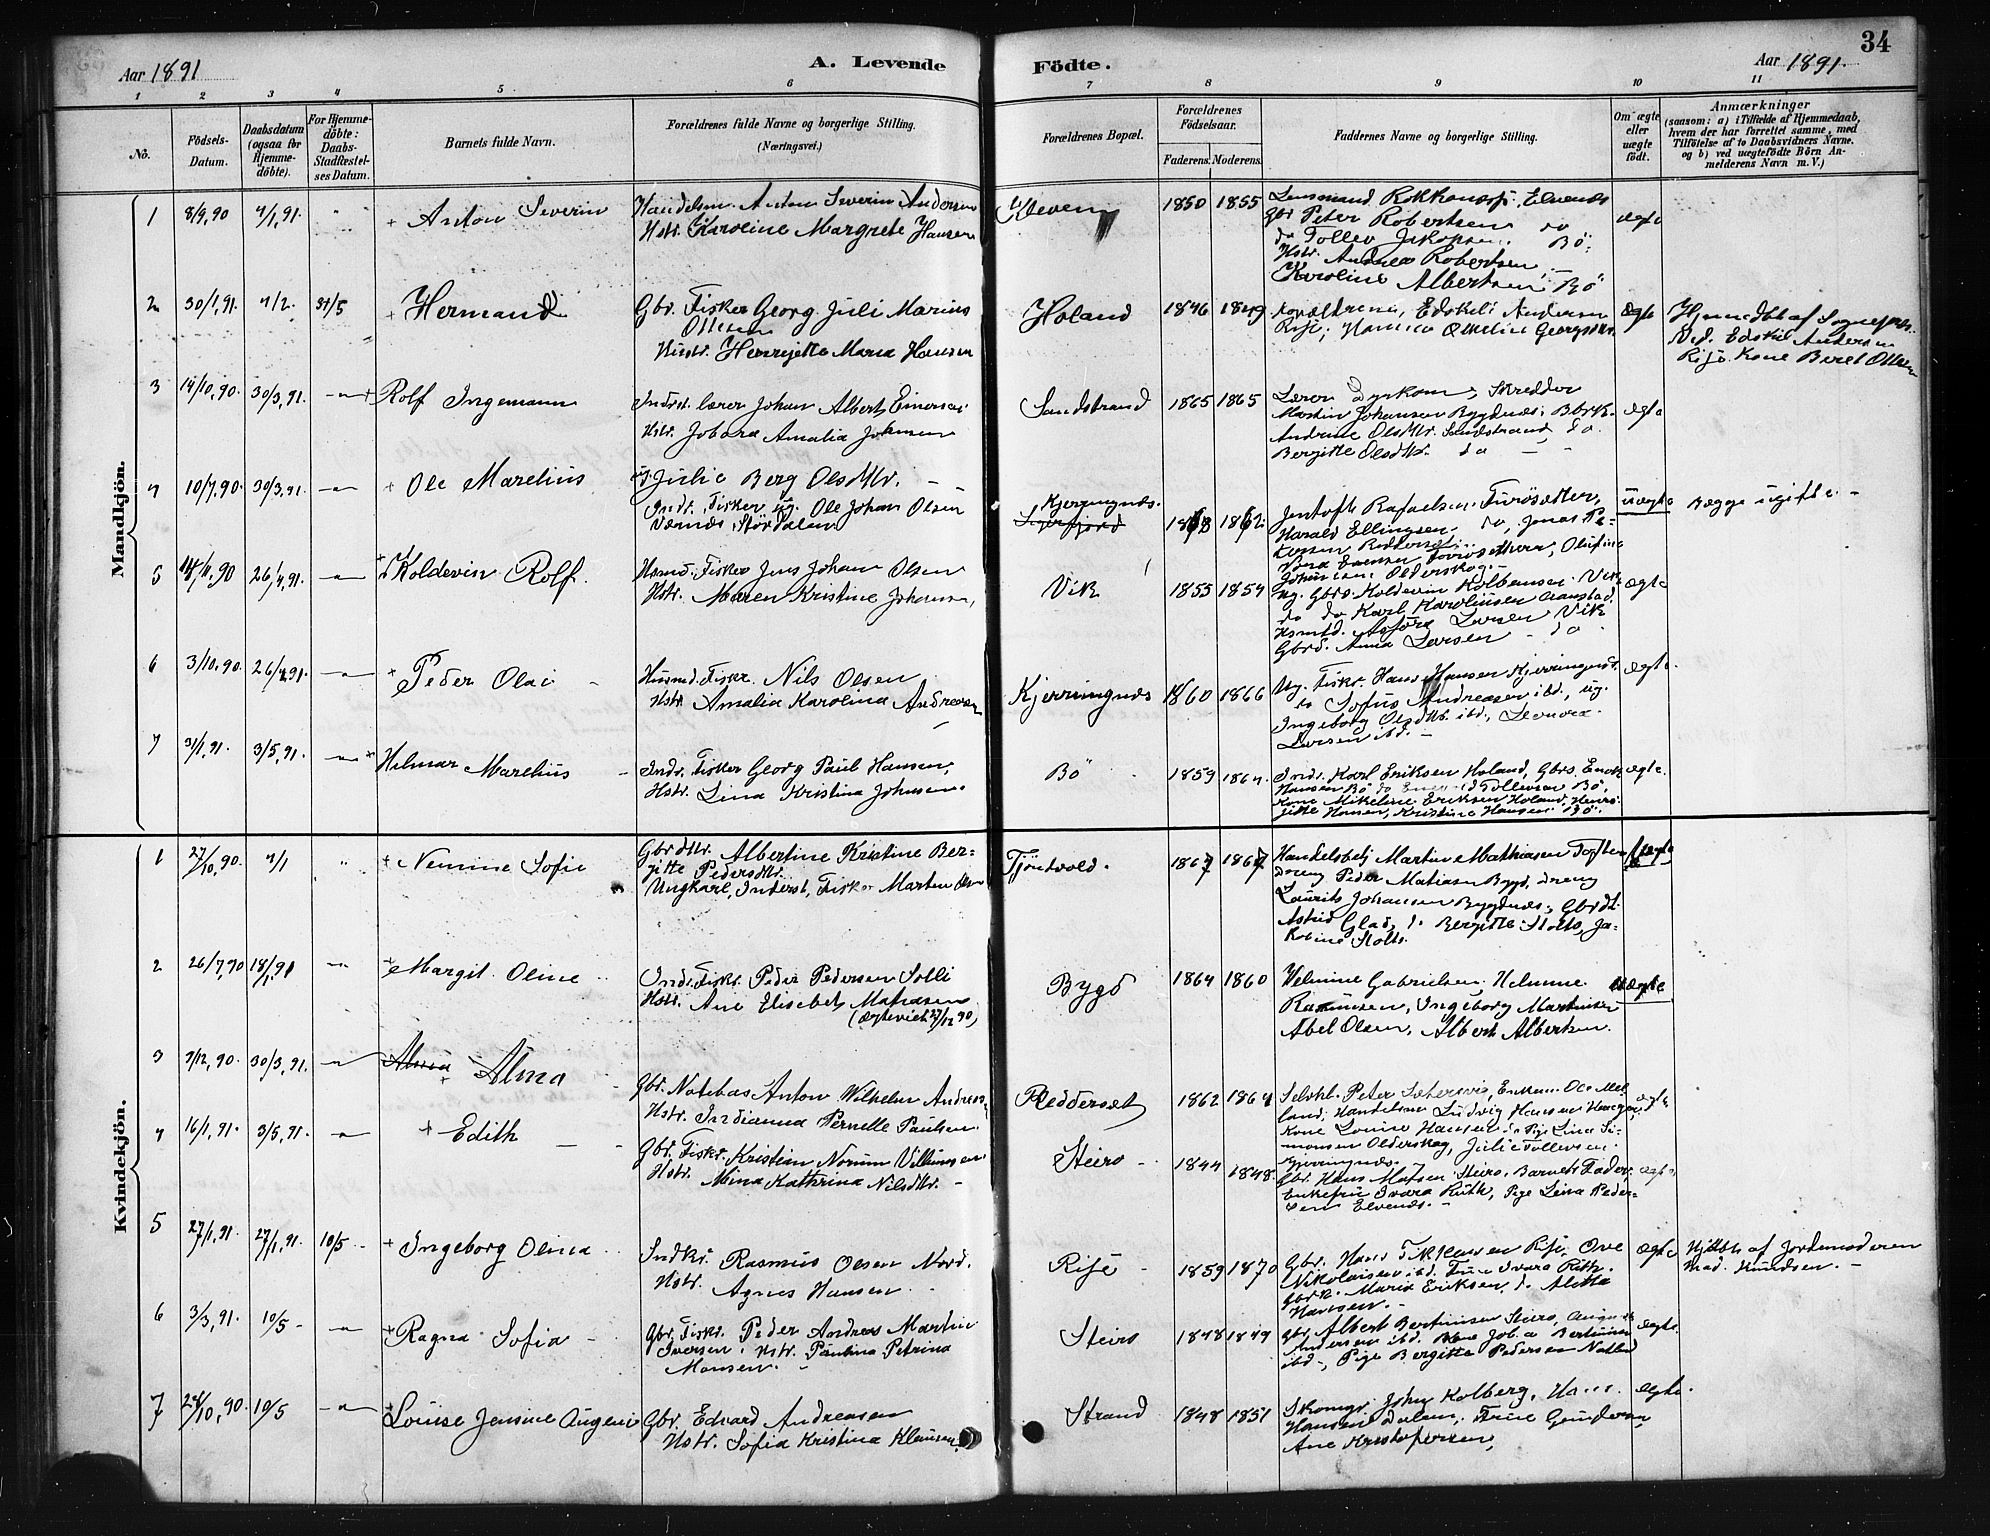 34
Aar 1891
A. Levende
Födte.
Aar 1891.
1 2 3 4 5 6 7 8 9 10 11
No.
Födsels-Datum.
Daabsdatum (ogsaa for Hjemmedöbte).
For Hjemmedöbte: Daabs-Stadfæstelses Datum.
Barnets fulde Navn.
Forældrenes fulde Navne og borgerlige Stilling.
(Næringsvei.)
Forældrenes Bopæl.
Forældrenes Födselsaar.
Faderens. Moderens.
Faddernes Navne og borgerlige Stilling.
Om ægte eller uægte födt.
Anmærkninger
(saasom: a) i Tilfælde af Hjemmedaab, hvem der har forrettet samme, med Tilföielse af to Daabsvidners Navne, og b) ved uægtefödte Börn Anmelderens Navn m. V.)
Mandkjön.
1 8/9,90 4/1,91. + Anton Severin
Handelsm. Anton Severin Andersen
Hstr. Karoline Margrete Hansen
Kleven 1850 1855
Gbr Peter Robertsen do
do Tollev Jakopsen. Bö.
Hstr. Andrea Robertsen
Karoline Albertsen Bö
ægte
2 30/1,91. 4/2. 31/5 + Hermand
Gbr. Fisker Georg Juli Marius
Ottesen
Hustr. Henrijette Maria Hansen
Holand 1846 1849
Forældrene, Edskild Andersen
Risö, Hanna Otteline Georgsen.
Ægte
Hjemmedöbt af Sognepr.
Ved. Edskil Andersen
Risö. Kone Beret Ottesen
3 14/10,90. 30/3,91. + Rolf Ingemann
Indrst. lærer Johan Albert Einersen
Hstr. Jobara Amalia Johnsen
Sandstrand 1865 1865
Lærer Dyrkorn, Skredder
Martin Johansen Bygdnes,
Andrine Olsdtr. Sandstrand, do.
Bergitte Olsdtr. do
ægte
4 10/7,90. 30/3,91. + Ole Marelius
Julie Berg Olsdtr.
Indr. Fisker ug. Ole Johan Olsen
Værnes, Stördalen
Kjerringnes.
1863 1862.
Jentoft Rafaelsen, Furösetter,
Harald Ellingsen. do, Jonas Pe-
tersen Reddersæt
Johnsen, Olderskog.
Uægte
Begge ugifte. -
5 14/11,90 26/4,91. + Koldevin Rolf.
Hsmd. Fisker Jens Johan Olsen
Hstr. Maren Kristine Johansen,
Vik 1855 1854
Ug. Gbrs. Koldevin Kolbensen Vik
do do Karl Karoliusen Aanstad.
Larsen Vik
Gbrd. Anna Larsen - do
ægte
6 3/10,90. 26/4,91. + Peder Olai
Husmd. Fiskr. Nils Olsen
Hstr. Amalia Karolina Andreasen
Kjerringnes 1860 1866
Ug. Fiskr. Hans Hansen Kjerringnes.
do Sofus Andreasen ibd., ug.
Ingeborg Olsdtr. ibd., Leonora
Larsen ibd. -
ægte
7 31/1,91. 3/5,91. + Hilmar Marelius
Indr. Fisker Georg Paul Hansen,
Hstr. Lina Kristina Johnsen.
Bö 1859 1864.
Indr. Karl Eriksen Holand, Gbrs. Enok
Hansen Bö do Tollevsen Bö,
Kone Mikeline Eriksen Holand, Henri-
jitte Hansen, Kristine Hansen Bö.
ægte.
Kvindekjön.
1 27/10,90. 4/1 + Nennine Sofie
Gbrdtr. Albertine Kristine Ber-
gitte Pedersdtr.
Ungkarl, Inderst, Fisker Martin Olsen
Tjöndvold. 1867 1867
Handelsbetj Martin Mathiasen Toften
Dreng Peder Matiasen Bygd, Dreng
Laurits Johansen Bygdnes, Gbrdt.
Astrid Glad, do Bergitte Stolts, Ja-
kobine Stolts.
Uægte
2 26/7,90 18/1,91 + Margit Oline
Indr. Fiskr. Peder Pedersen Solli
Hstr. Ane Elisebet Matiasen
(Ægteviet 27/12 90)
Bygd 1864 1860
Helmine Gabrielsen, Helmine
Rasmussen, Ingeborg Martinsen
Abel Olsen, Albert Albertsen.
Uægte
3 7/12,90. 30/3,91. Alma + Alma
Gbr. Notebas Anton Wilhelm Andreas.
Hstr. Indianna Pernelle Paulsen.
Reddersæt 1862 1864
Selvhl. Peter Sætersvig,
land, Handelsm. Ludvig Hansen
Kone Louise Hansen do Pige Lina Si-
monsen Olderskog, Julie Tollevsen
Kjerringnes.
ægte
4 16/1,91. 3/5,91. + Edith
Gbr. Fiskr. Kristian Norum Villumsen.
Hstr. Mina Kathrina Nilsdtr. -
Steiro 1844 1848.
Gbr. Hans Matsen Steiro, Barnets Fader,
Enkefru Ivara Ruth, Pige Lena Peder-
sen Elvenes. -
ægte
5 27/1,91. 27/1,91. 10/5 + Ingeborg Olina
Indkr. Rasmus Olsen Nord.
Hstr. Agnes Hansen.
Risö 1859 1870
Gbr. Hans Risö, Ove
Nikolaisen ibd. Fru Ivara Ruth.
Maria Eriksen, do Aletta
Hansen. -
ægte
Hjdöbt af Jordemoderen
Mad. Knudsen. -
6 3/3,91. 10/5 + Ragna Sofia
Gbr. Fiskr. Peder Andreas Martin
Iversen. Hstr. Paulina Petrina
Monsen.
Steiro 1848 1849
Gbr. Albert Bertinsen Steiro, August
Andersen ibd. Bertinsen
ibd, Pige Bergitte Pedersen
ægte.
7 24/10,90. 10/5 + Louise Jensine Augeni
Gbr. Edvard Andreasen
Hstr. Sofia Kristina Klausen.
Strand 1848 1851
Skomgr. Johan Kolberg, Hans
Hansen Dalen, Trine Gundersen
Ane Kristofersen,
ægte.